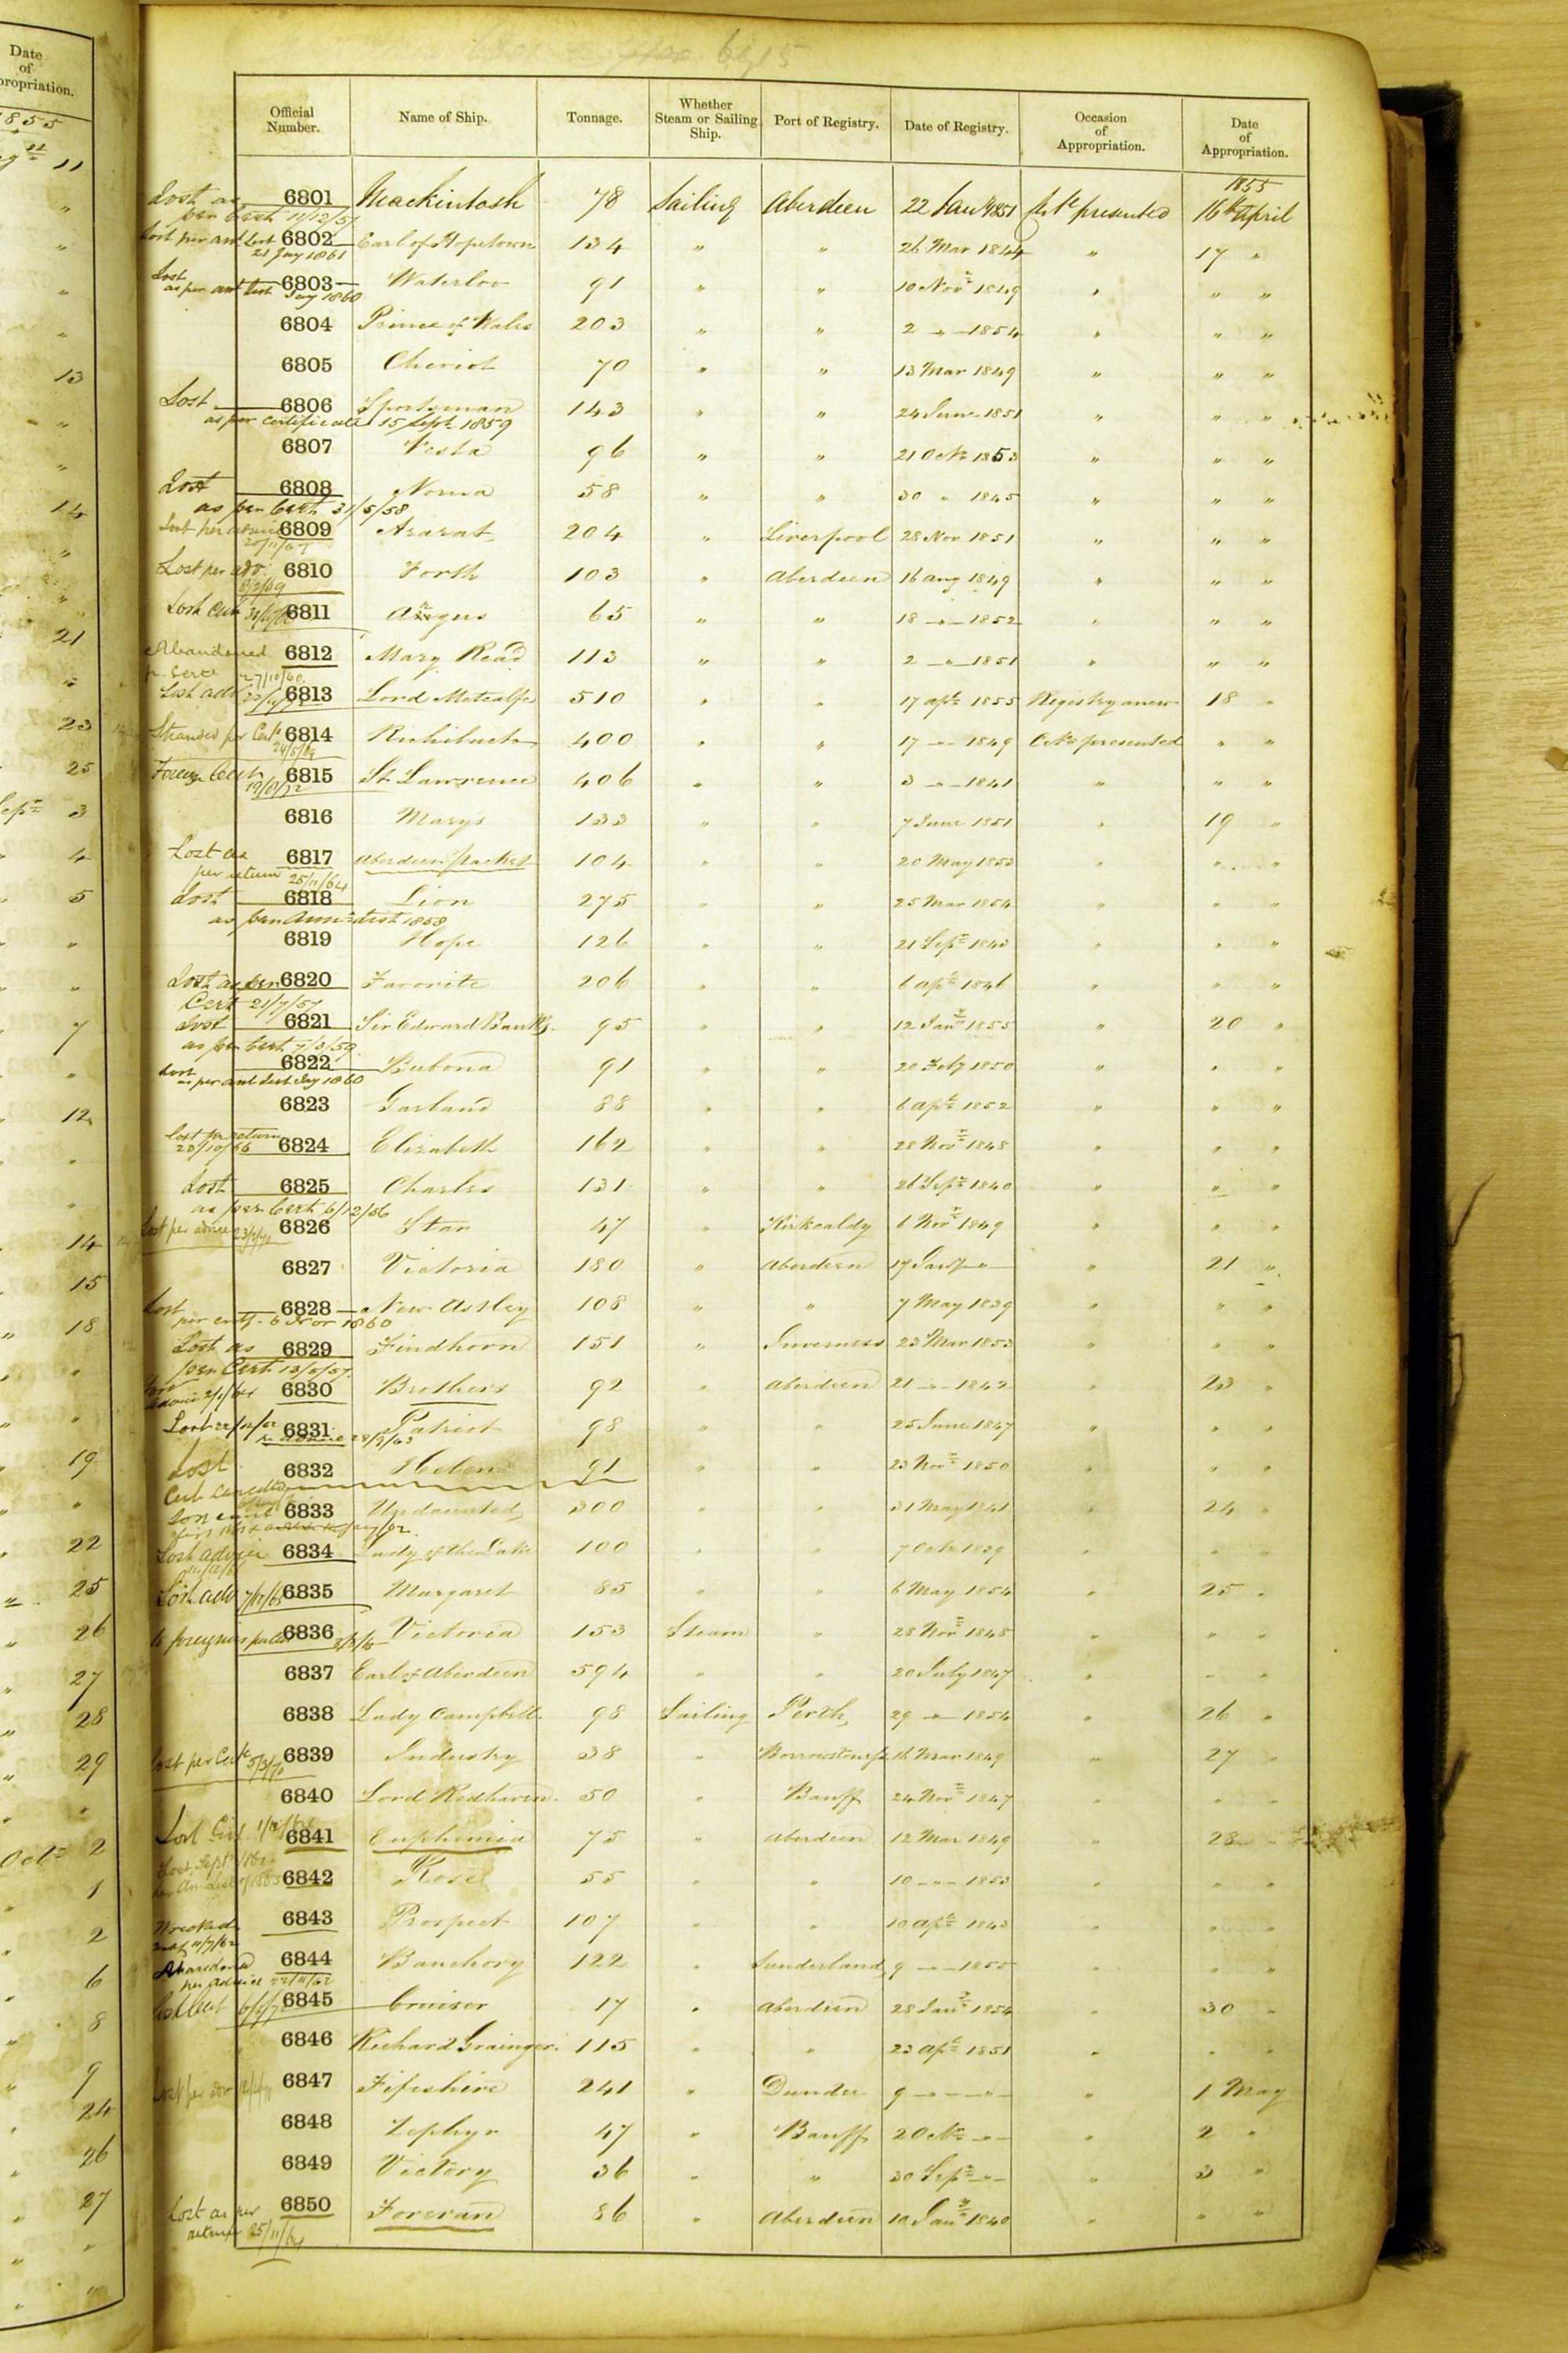 Date
of
propriation.
1855
11
"
"
"
"
13
"
"
14
"
"
21
"
23
25
Sep 3
4
5
"
"
7
"
12
"
"
14
15
18
"
"
19
"
22
25
26
27
28
29
"
Oct 2
1
2
6
8
9
24
26
27
"
"
Official Number. Name of Ship. Tonnage. Whether Steam or Sailing Ship. Port of Registry. Date of Registry. Occasion of Appropriation. Date of Appropriation.
1855
Lost as per Cert 11/12/57 6801 Mackintosh 78 Sailing Aberdeen 22 Jany 1851 Cte presented 16th April
Lost per anl List 21 Jany 1861 6802 Earl of Hopetown 134 " " 26 Mar 1844 " 17 "
Lost as per anl List Jay 1860 6803 Waterloo 91 " " 10 Nov 1849 " " "
6804 Prince of Wales 203 " " 2 " 1854 " " "
6805 Cheviot 70 " " 13 Mar 1849 " " "
Lost as per certificate 15 Sept 1859 6806 Sportsman 143 " " 24 June 1851 " " "
6807 Vesta 96 " " 21 Oct 1853 " " "
Lost as per Cert 31/5/58 6808 Norma 58 " " 30 " 1845 " " "
Lost per advice 6809 Ararat 204 " Liverpool 28 Nov 1851 " " "
Lost per adv. 6810 Forth 103 " Aberdeen 16 Aug 1849 " " "
Lost Cert 6811 Angus 65 " " 18 " 1852 " " "
Abandoned p. Certe 27/10/60 6812 Mary Read 113 " " 2 " 1851 " " "
Lost adv 6813 Lord Metcalfe 510 " " 17 Apl 1855 Registry anew 18 "
Stranded per Cert 6814 Richibucto 400 " " 17 " 1849 Cte presented " "
Foreign Cert 6815 St Lawrence 406 " " 3 " 1841 " " "
6816 Marys 133 " " 7 June 1851 " 19 "
Lost as per return 25/11/64 6817 Aberdeen Packet 104 " " 20 May 1853 " " "
Lost as per Annl List 1858 6818 Lion 275 " " 25 Mar 1854 " " "
6819 Hope 126 " " 21 Sept 1843 " " "
Lost as per Cert 21/7/57 6820 Favorite 206 " " 6 Apl 1846 " " "
Lost as per Cert 7/3/59 6821 Sir Edward Banks 95 " " 12 Jany 1855 " 20 "
Lost as per anl List Jay 1860 6822 Bubona 91 " " 20 Feby 1850 " " "
6823 Garland 88 " " 6 Apl 1852 " " "
Lost per return 20/10/66 6824 Elizabeth 162 " " 28 Nov 1848 " " "
Lost as per Cert 6/12/56 6825 Charles 131 " " 26 Sept 1840 " " "
Lost per advice 6826 Star 47 " Kirkcaldy 6 Nov 1849 " " "
6827 Victoria 180 " Aberdeen 17 Jany " " 21 "
Lost per certf. 6 Nov 1860 6828 New Astley 108 " " 7 May 1839 " " "
Lost as per Cert 6829 Findhorn 151 " Inverness 23 Mar 1853 " " "
advice 6830 Brothers 92 " Aberdeen 21 " 1842 " 23 "
Lost 6831 Patriot 98 " " 25 June 1847 " " "
Lost Cert Cancelled 6832 Helen 91 " " 23 Nov 1850 " " "
6833 Undaunted 300 " " 31 May 1841 " 24 "
Lost advice 6834 Lady of the Lake 100 " " 7 Oct 1839 " " "
Lost adv 6835 Margaret 85 " " 6 May 1854 " 25 "
to foreigners 6836 Victoria 153 Steam " 28 Nov 1848 " " "
6837 Earl of Aberdeen 594 " " 20 July 1847 " " "
6838 Lady Campbell 98 Sailing Perth 29 " 1854 " 26 "
Lost per Cert 6839 Industry 38 " Borrowstoness 16 Mar 1849 " 27 "
6840 Lord Redhaven 50 " Banff 24 Nov 1847 " " "
Lost Cert 6841 Euphemia 75 " Aberdeen 12 Mar 1849 " 28 "
Lost Sept 6842 Rose 55 " " 10 " 1853 " " "
Wrecked 11/7/62 6843 Prospect 107 " " 10 Apl 1843 " " "
Abandoned per advice 22/11/62 6844 Banchory 122 " Sunderland 9 " 1855 " " "
Lost Cert 6845 Cruiser 17 " Aberdeen 28 Jany 1854 " 30 "
6846 Richard Grainger 115 " " 23 Apl 1851 " " "
Lost per adv 6847 Fifeshire 241 " Dundee 9 " " " 1 May
6848 Zephyr 47 " Banff 2 Oct " " 2 "
6849 Victory 36 " " 30 Sept " " 3 "
Lost as per return 25/11/64 6850 Foreran 86 " Aberdeen Jany 1840 " " "